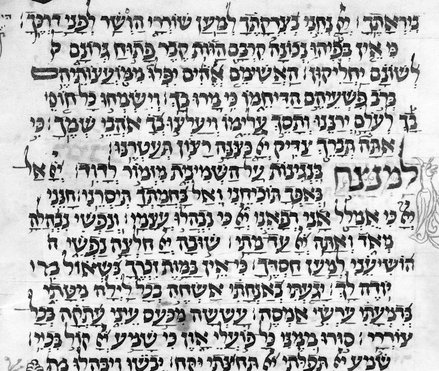 ביראתך: יי נחני בצדקתך למען שוררי הושר לפני דרכך:
כי אין בפיהו נכונה קרבם הוות קבר פתוח גרונם
לשונם יחליקון: האשימם אלהים יפלו ממועצותיהם
ברב פשעיהם הדיחמו כי מרו בך: וישמחו כל חוסי
בך לעלם ירננו ותסך עלימו ויעלצו בך אהבי שמך: כי
אתה תברך צדיק יי כצנה רצון תעטרנו:
למנצח בנגינות על השמינית מזמור לדוד: יי אל
באפך תוכיחני ואל בחמתך תיסרני: חנני
יי כי אמלל אני רפאני יי כי נבהלו עצמי: ונפשי נבהלה
מאד ואתה יי עד מתי: שובה יי חלצה נפשי ה
הושיעני למען חסדך: כי אין במות זכרך בשאול מי
יודה לך: יגעתי באנחתי אשחה בכל לילה מטתי
בדמעתי ערשי אמסה: עששה מכעס עיני עתקה בכל
צוררי: סורו ממני כל פועלי און כי שמע יי קול בכיי:
שמע יי תפלתי יי תחינתי יקח: יבשו ויבהלו